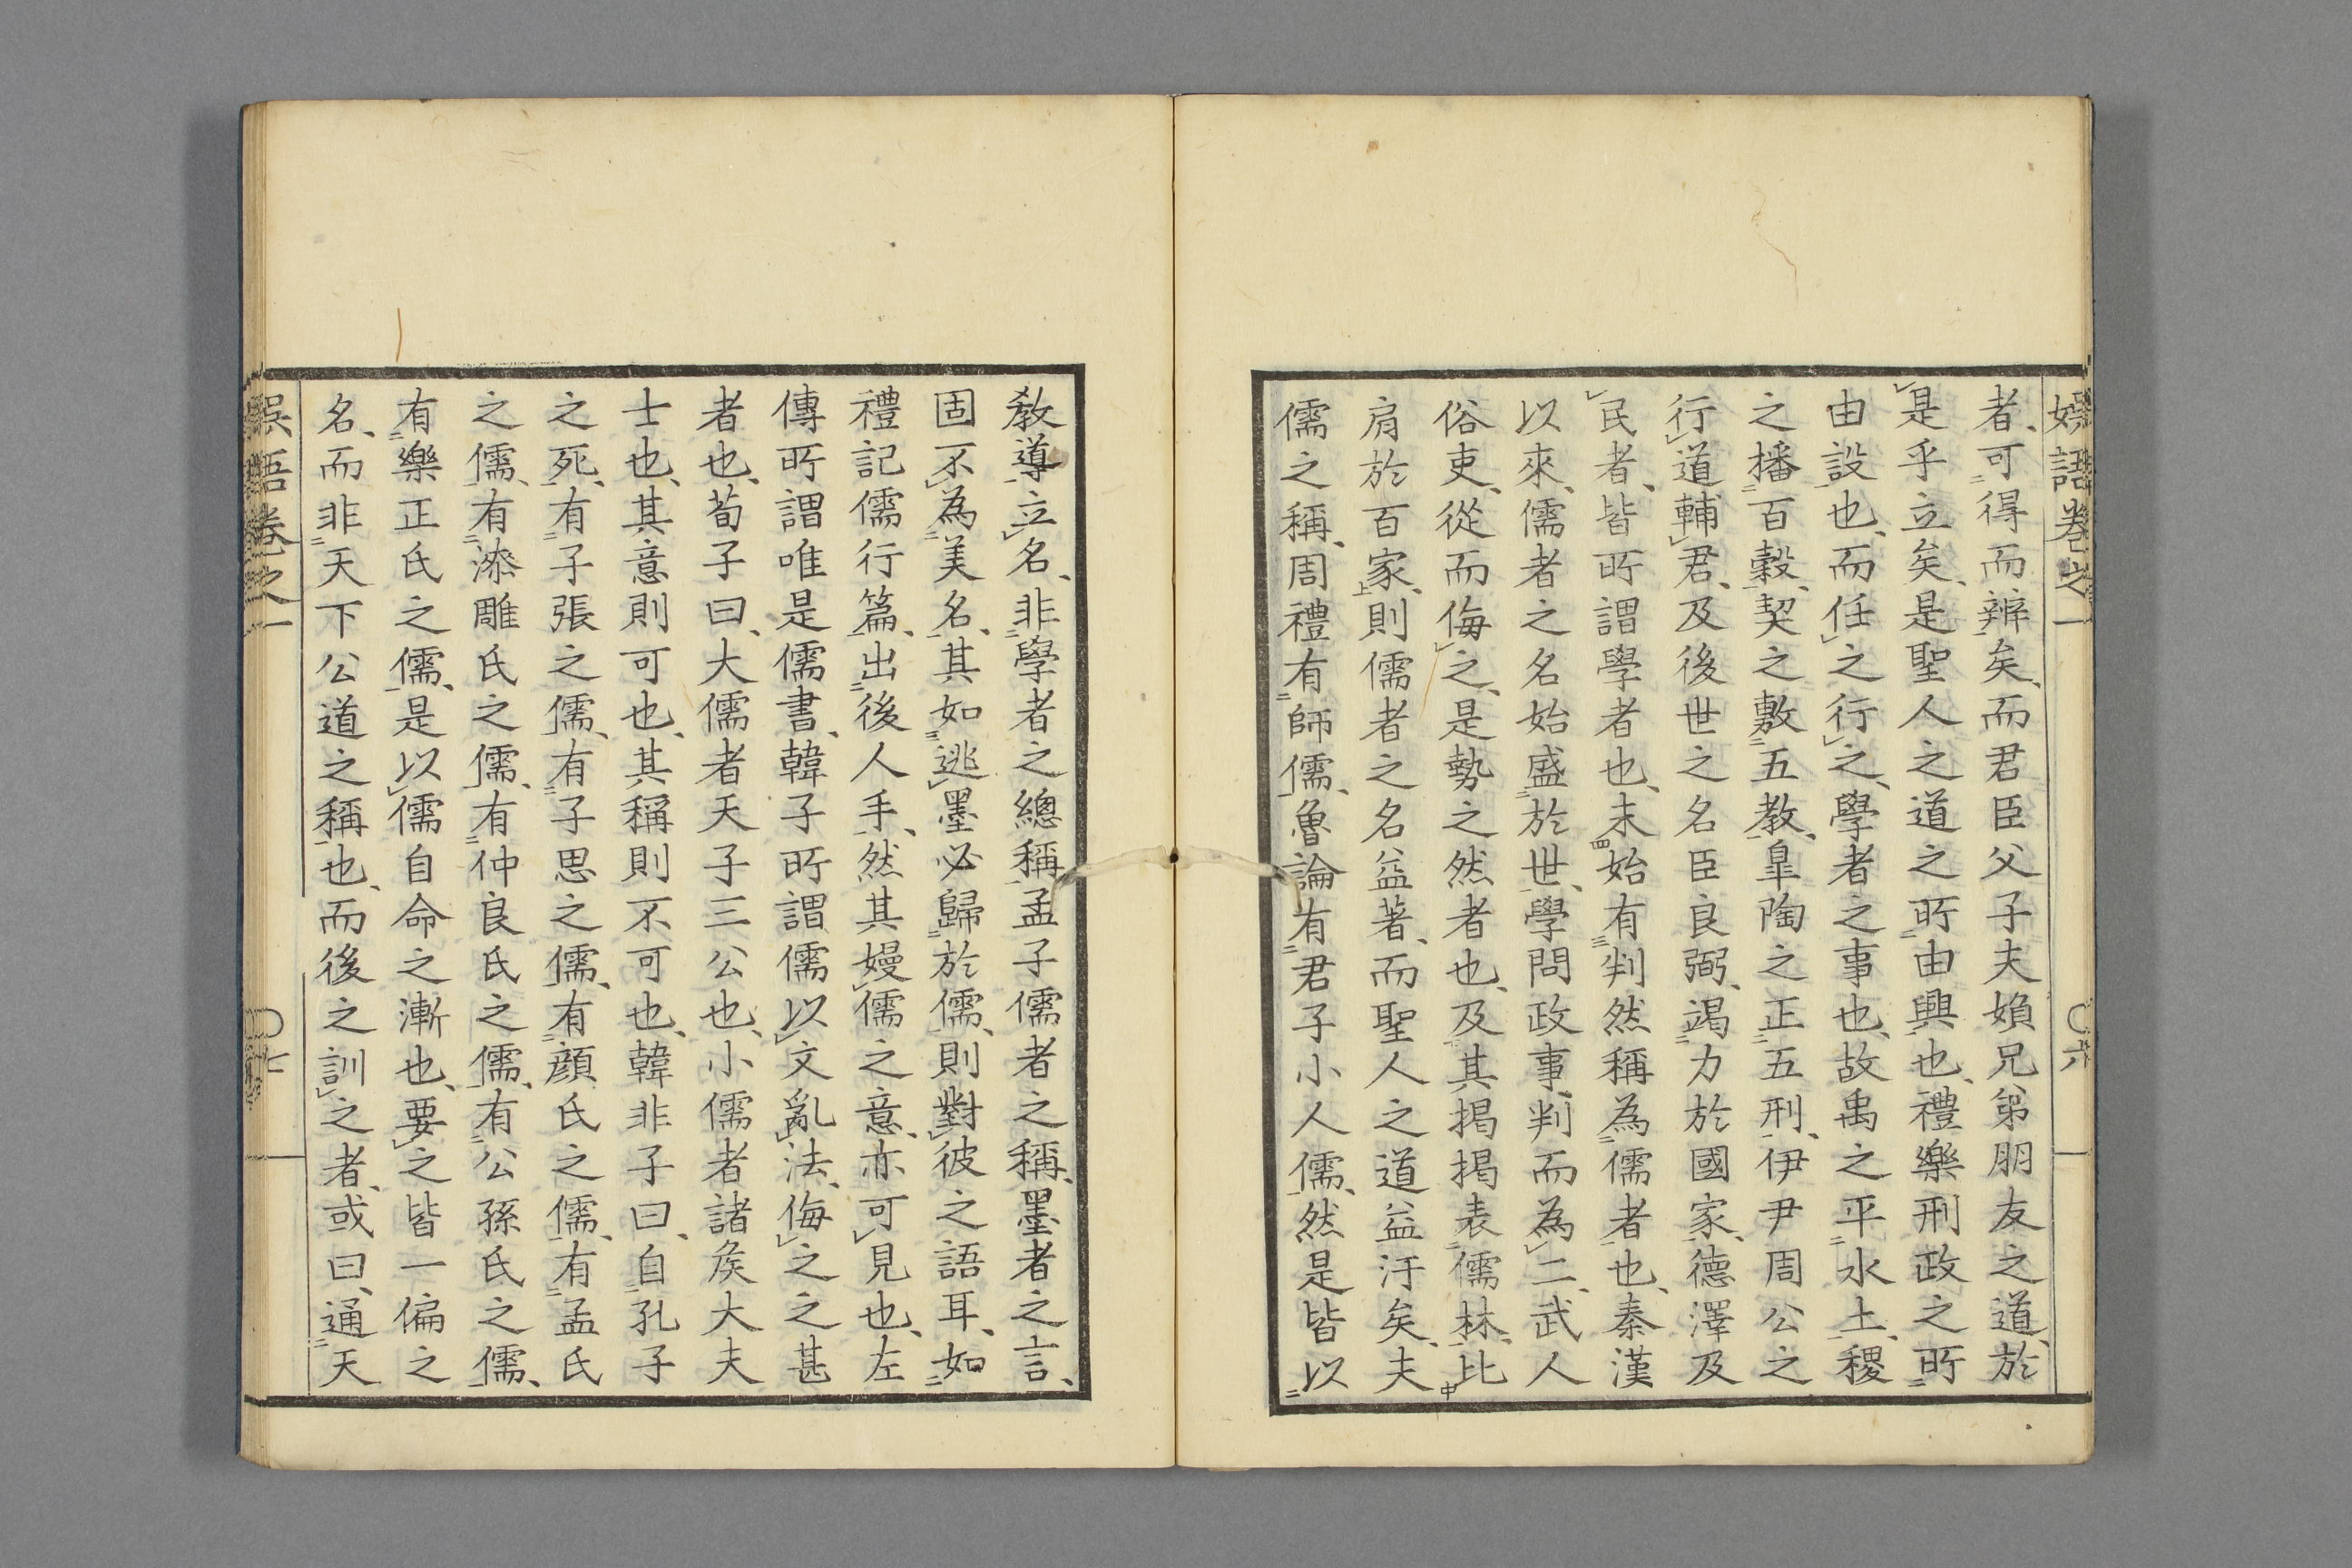 娯語卷之一 〇六
者、可得而辨矣、而君臣父子夫婦兄弟朋友之道、於
是乎立矣、是聖人之道之所由興也、禮樂刑政之所
由設也、而任之行之、學者之事也、故禹之平水土、稷
之播百穀、契之敷五教、皐陶之正五刑、伊尹周公之
行道輔君、及後世之名臣良弼、竭力於國家、德澤及
民者、皆所謂學者也、未始有判然稱為儒者也、秦漢
以來、儒者之名始盛於世、學問政事、判而為二、武人
俗吏、從而侮之、是勢之然者也、及其揭揭表儒林、比
肩於百家、則儒者之名益著、而聖人之道益汙矣、夫
儒之稱、周禮有師儒、魯論有君子小人儒、然是皆以
教導立名、非學者之總稱、孟子儒者之稱、墨者之言、
固不為美名、其如逃墨必歸於儒、則對彼之語耳、如
禮記儒行篇、出後人手、然其嫚儒之意、亦可見也、左
傳所謂唯是儒書、韓子所謂儒以文亂法、侮之之甚
者也、荀子曰、大儒者天子三公也、小儒者諸矦大夫
士也、其意則可也、其稱則不可也、韓非子曰、自孔子
之死、有子張之儒、有子思之儒、有顔氏之儒、有孟氏
之儒、有漆雕氏之儒、有仲良氏之儒、有公孫氏之儒、
有樂正氏之儒、是以儒自命之漸也、要之皆一偏之
名、而非天下公道之稱也、而後之訓之者、或曰、通天
娯語卷之一 〇七